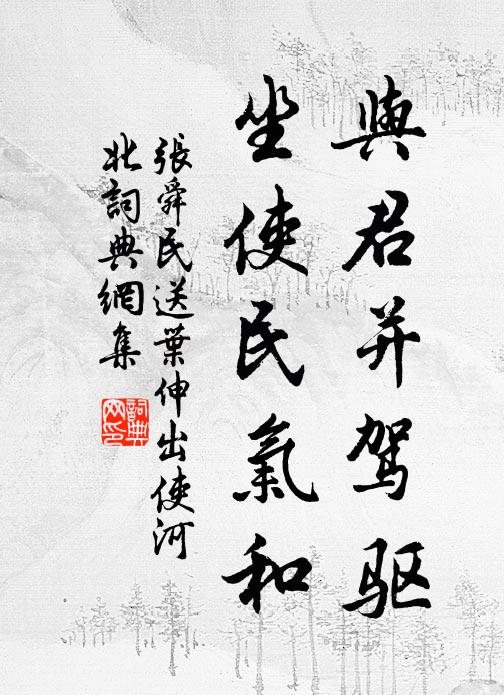 與君并驾驱
坐使民氣和
張舜民送葉伸出使河
北詞典網集
詞典
网印